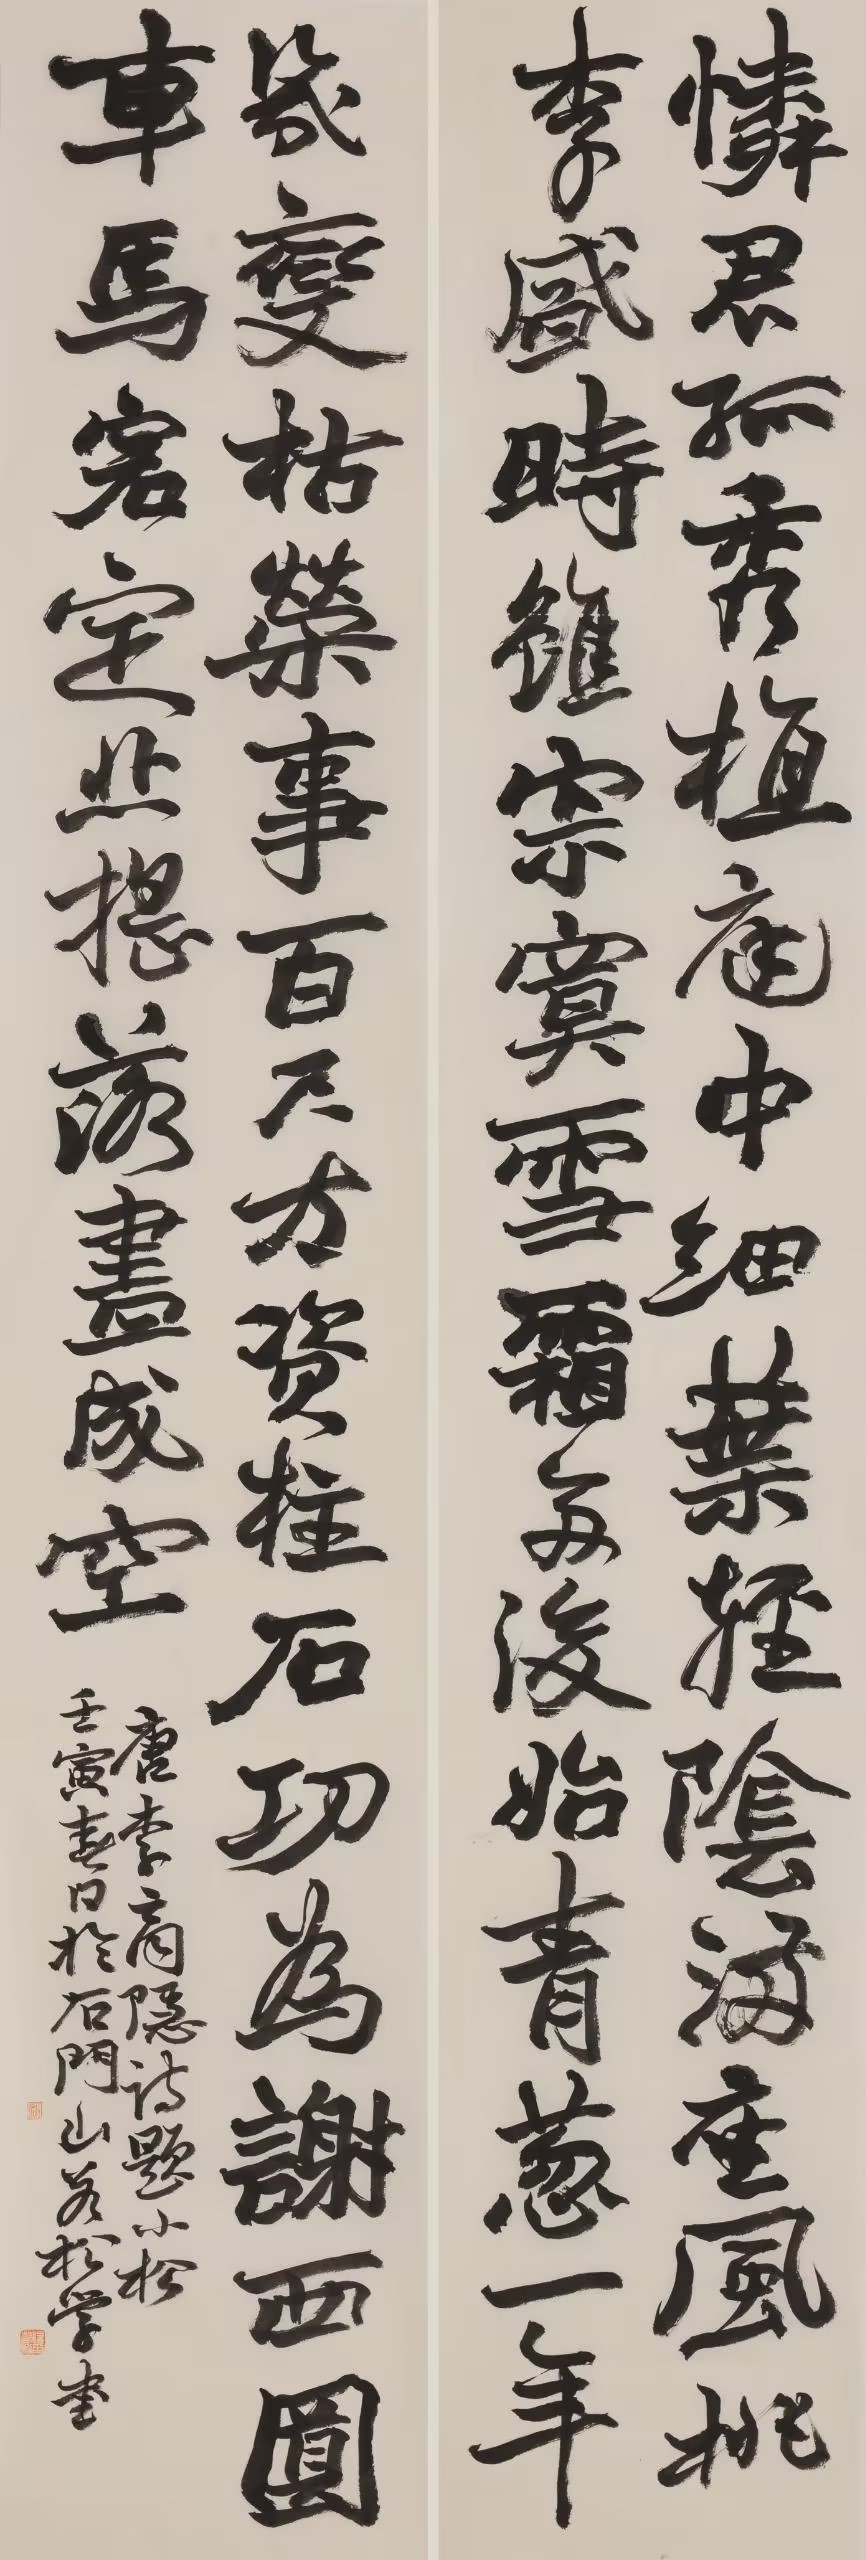 憐君孤秀植庭中細葉輕陰滿座風桃
李盛時雖寂寞雪霜多後始青蔥一年
幾變枯榮事百尺方資柱石功為謝西園
車馬客定悲搖落盡成空
唐李商隱詩題小松
壬寅春日於石門山若松學書